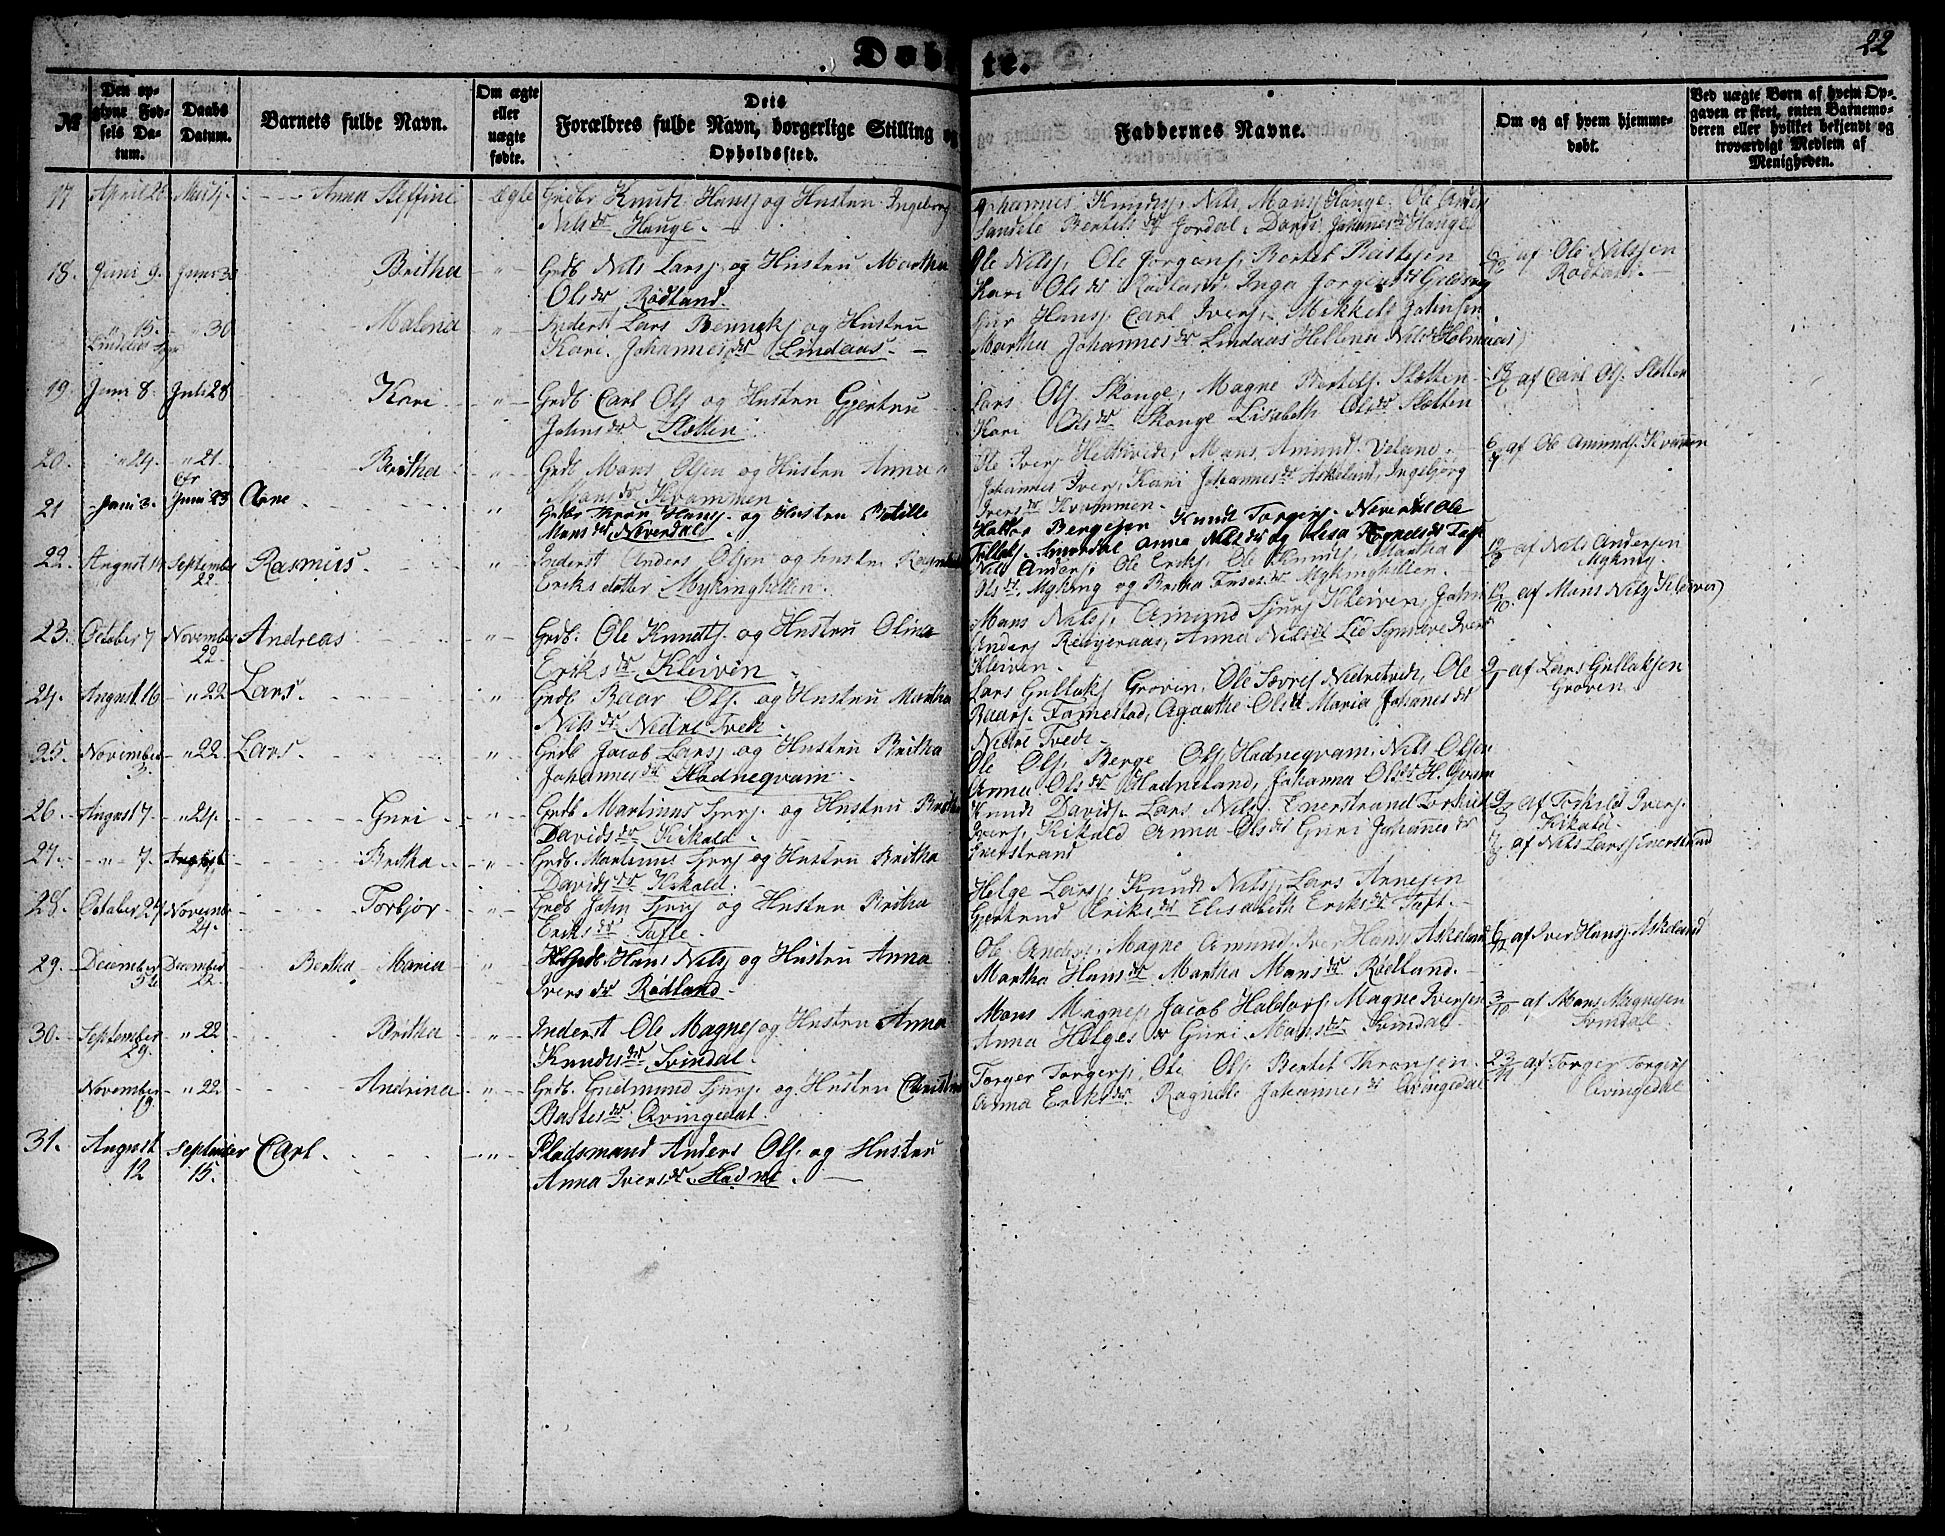 Døbte.
22
No
Den opgivne Fødsels Datum.
Daabs Datum.
Barnets fulde Navn.
Om ægte eller uægte fødte.
Dets Forældres fulde Navn, borgerlige Stilling og Opholdssted.
Faddernes Navne.
Om og af hvem hjemmedøbt.
Ved uægte Børn af hvem Opgaven er skeet, enten Barnemoderen eller hvilket bekjendt og troværdigt Medlem af Menigheden.
17 April 26 Anna Steffine ægte Grdbr Knudt Hansj og Hustru Ingeborg
Nils dr Hauge.
Johannes Knudsj, Nils Monsj Hauge, Ole Anders
Bertels dr Jordal, Dorde Johannes dr Hauge
18. Juni 9. Juni 30 Britha " Grdb Nils Larsj og Hustru Martha
Ols dr Rødland.
Ole Nilsj, Ole Jørgensj, Bertel
Kari Ols dr Rødland, Inga Jørgens dr
af Ole Nilssen
Rødland.
" 15. " 30 Malena " Inderst Lars og Hustru
Kari Johannes dr Lindaas.
Hansj, Carl Iversj, Mikkels Johnsen
Martha Johannes dr Lindaas Hellena Nils dr
19. Juni 8. Juli 28 Kari " Grdb. Carl Olsj og Hustru Gjertru
Johns dr Sletten
Lars Olsj Skauge, Magne Bertelsj. Sletten
Kari Ols dr Skauge Lisabeth Ols dr Sletten
13/6 af Carl Olsj. Sletten
20. " 24. " 21. Britha " Grdb Mons Olsen og Hustru Anna
Mons dr Kvammen
Ole Iversj Mons Amunds
Johannes Iversj, Kari Johannes dr Askeland, Ingebjørg
Ivers dr Kvammen.
6/7 af Ole Amundsj. Kvammen
21 Juni 3. Juni 23 Arne " Grdbr Hansj. og Hustru Botille
Mons dr Noverdal.
Haldor Bergesen Knudt Torgersj. Noverdal Ole
Anna Nils dr og Lisa
22. August 14 September
22 Rasmus " Inderst Anders Olsen og Hustru
Eriks datter Mykingholten.
Nils Andersj Ole Eriksj, Ole Knudtsj, Martha
Ols dr Myking og Britha dr Mykingholten.
af Nils Andersen
Myking.
23. October 7 November
22 Andreas " Grdb. Ole Knudtsj. og Hustru Olina
Eriks dr Kleiven
Mons Nilsj, Amund Sjursj Kleiven, John
Andersj Anna Nils dr Lid
Kleiven.
12/10. af Mons Nilsj Kleiven
24. August 16 " 22 Lars. " Grdb Baar Olsj. og Hustru Martha
Nils dr Nedre Tveit
Lars Gullaksj Groven, Ole Nedretvedt, Ole
Baarsj. Fonnestad, Agaathe Ols dr Maria Johannes dr
Nedre Tvedt
af Lars Gullaksen
Groven.
25. November
3. " 22 Lars. " Grdb Jacob Larsj og Hustru Britha
Johannes dr Hodneqvam.
Ole Olsj, Berge Olsj Hodneqvam, Nils Olsen
Anna Ols dr Hodneland, Johanna Ols dr H.qvam
26. August 7. " 24. Guri " Grdb Martinus Sjursj. og Hustru Britha
Davids dr Kikald
Knudt Davidsj. Lars Nilsj. Enerstrand Torkild
Iversj. Kikald Anna Ols dr Guri Johannes dr
Enerstrand
af Torkild Iversj.
Kikald.
27. " 7. Britha " Grdb. Martinus Sjursj og Hustru Britha
Davids dr Kikald.
af Nils Larsj Enerstrand
28. October 27 November
24. Torbjør " Grdb John Sjursj og Hustru Britha
Eriks dr Tafte.
Helge Larsj, Knudt Nilsj, Lars Arnesen
Gjertrud Eriks dr Elisabeth Eriks dr Taft.
29. December
5te December
22. Bertha Maria " Grdb. Hans Nilsj og Hustru Anna
Ivers dr Rødland
Ole Andersj. Magne Amunds Iver Hansj Askeland
Martha Hans dr Martha Mons dr Rødland.
af Iver Hansj. Askeland
30. September
29. " 22 Britha " Inderst Ole Magnesj og Hustru Anna
Knudts dr Svindal.
Mons Magnesj Jacob Haldorsj, Magne Iversen
Anna Helges dr Guri Mons dr Svindal
3/10 af Mons Magnesen
Svindal.
November
19. " 22 Andrina " Grdb. Gudmund Sjursj. og Hustru Christina
Bastes dr Qvingedal.
Torger Torgersj, Ole Olsj Bertel Thronsen.
Anna Eriks dr. Ragnille Johannes dr Qvingedal
23/11 af Torger Torgersj
Qvingedal
31. August
12 September
15. Carl. " Pladsmand Anders Olsj. og Hustru
Anna Ivers dr Hodne.